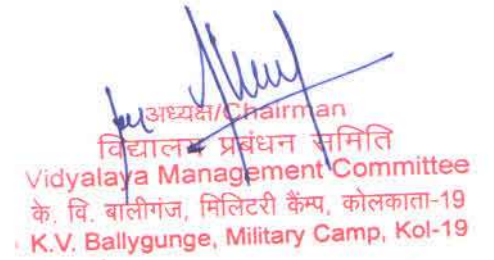 अध्यक्ष/Chairman
विद्यालय प्रबंधन समिति
Vidyalaya Management Committee
के. वि. बालीगंज, मिलिटरी कैंम्प, कोलकाता-19
K.V. Ballygunge, Military Camp, Kol-19